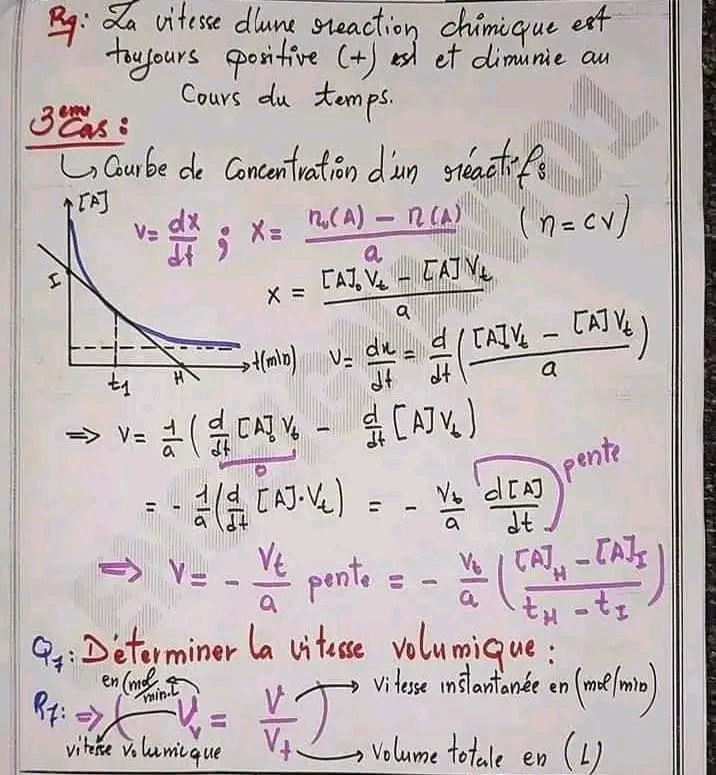 Rq: La vitesse d'une reaction chimique est
toujours positive (+) est et diminie au
Cours du temps.
3eme Cas :
↳ Courbe de Concentration d'un réactif:
[A]
v = dx/dt ; X = (n₀(A) − n(A))/a (n = cv)
I
x = ([A]₀ Vt − [A] Vt)/a
t1
H
t(min)
v = dx/dt = d/dt (([A]Vt − [A]Vt)/a)
⇒ v = 1/a (d/dt [A]₀ Vt − d/dt [A] Vt)
0
= − 1/a (d/dt [A]·Vt) = − Vt/a d[A]/dt
pente
⇒ V = − Vt/a pente = − Vt/a (([A]H − [A]I)/(tH − tI))
Q7: Déterminer la vitesse volumique :
en (mol/min.L)
R7: ⇒ ( Vv = V/Vt )
Vitesse instantanée en (mol/min)
vitesse volumique
Volume totale en (L)